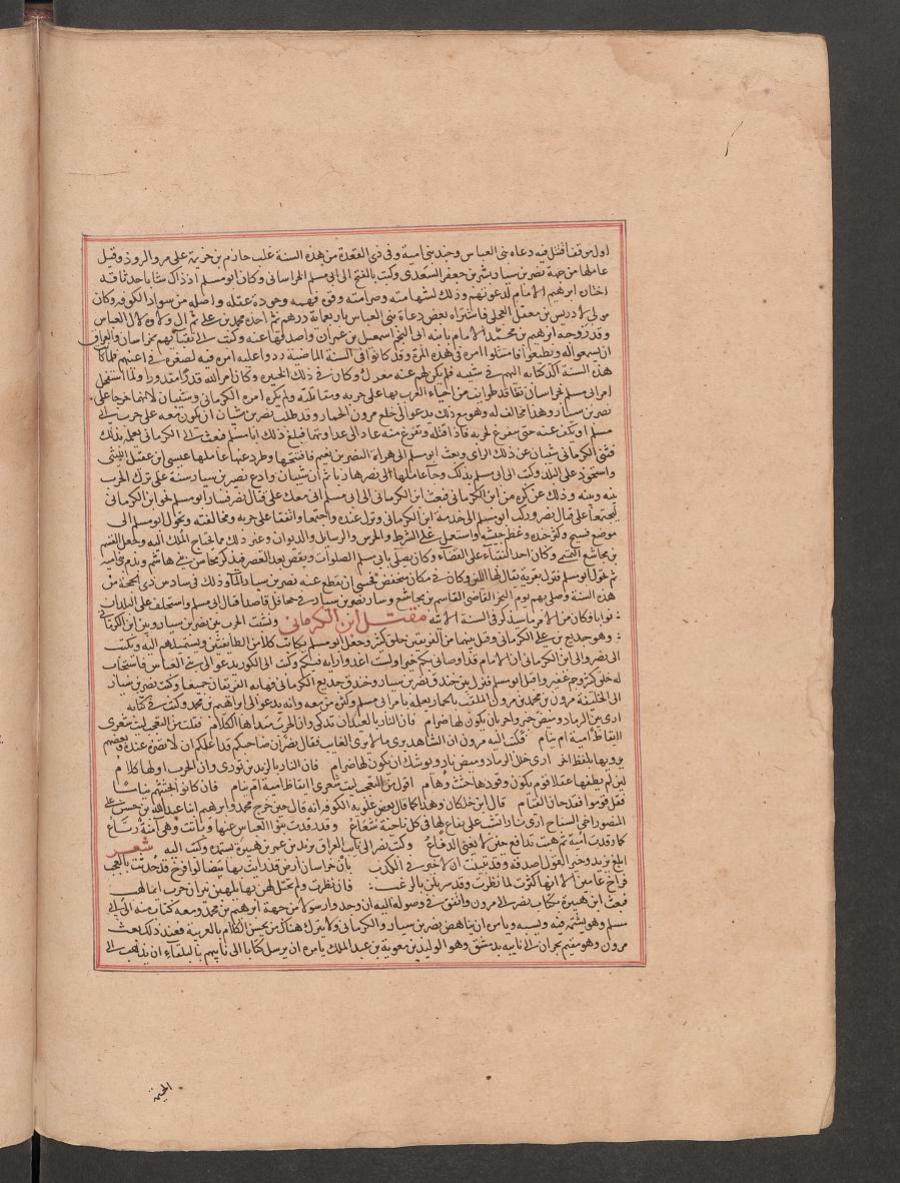 اول موقف اقتتل فيه دعاه بنى العباس وجند بنى امية وفى ذى القعدة من هذه السنة غلب حازم بن خزيمة على مرو الروذ وقتل
عاملها من جهة نصر بن سيار بشر بن جعفر السعدى وكتب بالفتح الى ابى مسلم الخراسانى وكان ابو مسلم اذ ذاك شابا حدثا قد
اختاره ابرهيم الامام لدعوتهم وذلك لشهامته وصرامته وقوة فهمه وجودة عقله واصله من سواد الكوفه وكان
مولى لادريس بن معقل العجلى فاشتراه بعض دعاة بنى العباس باربعمائة درهم ثم اخذه محمد بن على ثم ال ولاوه لال العباس
وقد زوجه ابرهيم بن محمد الامام بابنه ابى النجم اسمعيل بن عمران واصدقها عنه وكتب الى نقبائهم بخراسان والعراق
ان يسمعوا له ويطيعوا فامتثلوا امره فى هذه المرة وقد كانوا فى السنة الماضية ردوا عليه امره فيه لصغره فى اعينهم فلما كان
هذه السنة اكد كتابه اليهم فى سببه فلم يكن لهم عنه معدل وكان فى ذلك الخيره وكان امر الله قدرا مقدورا ولما استفحل
امر ابى مسلم بخراسان تعاقد طوايف من احياء العرب بها على حربه ومقاتلته ولم يكره امره الكرمانى وشيبان لانهما خرجا على
نصر بن سيار وهذا مخالف له وهو مع ذلك يدعو الى خلع مرون الحمار وقد طلب نصر من شيبان ان يكون معه على حرب ابى
مسلم او يكف عنه حتى يتفرغ لحربه فاذا قتله وتفرغ منه عاد الى عداوتهما فبلغ ذلك ابا مسلم فبعث الى الكرمانى يعلمه بذلك
فثنى الكرمانى شيبان عن ذلك الراى وبعث ابو مسلم الى هراة النضر بن نعيم فافتتحها وطرد عنها عاملها عيسى بن عقيل الليثى
واستحوذ على البلد وكتب الى ابى مسلم بذلك وجا عاملها الى نصر هاربا ثم ان شيبان وادع نصر بن سيار سنة على ترك الحرب
بينه وبينه وذلك عن كره من ابن الكرمانى فبعث ابن الكرمانى الى ابى مسلم انى معك على قتال نصر فسار ابو مسلم نحو ابن الكرمانى
ليجتمعا على قتال نصر وركب ابو مسلم الى خدمة ابن الكرمانى ونزل عنده واجتمعا واتفقا على حربه ومخالفته وتحول ابو مسلم الى
موضع فسيح وكثر جنده وعظم جيشه واستعمل على الشرط والحرس والرسايل والديوان وغير ذلك مما يحتاج الملك اليه وجعل القسم
بن مجاشع التميمى وكان احد النقباء على القضاء وكان يصلى بابى مسلم الصلوات ويقص بعد العصر فيذكر محاسن بنى هاشم ويذم بنى امية
ثم تحول ابو مسلم فنزل بقرية يقال لها اللين وكان فى مكان منخفض فخشى ان يقطع عنه نصر بن سيار الما وذلك فى سادس ذى الحجة من
هذه السنة وصلى بهم يوم النحر القاضى القاسم بن مجاشع وسار نصر بن سيار فى جحافل قاصدا قتال ابى مسلم واستخلف على البلدان
نوابا فكان من الامر ما سنذكر فى السنة الاتية مقتل ابن الكرمانى ونشبت الحرب بين نصر بن سيار وبين ابن الكرمانى
وهو جديع بن على الكرمانى وقتل بينهما من الفريقين خلق كثير وجعل ابو مسلم يكاتب كلا من الطايفتين ويستميلهم اليه ويكتب
الى نصر والى ابن الكرمانى ان الامام قد اوصانى بكم خيرا ولست اعدو رايه فيكم وكتب الى الكور يدعو الى بنى العباس فاستجاب
له خلق كثير وجم غفير واقبل ابو مسلم فنزل بين خندق نصر بن سيار وخندق جديع الكرمانى فهابه الفريقان جميعا وكتب نصر بن سيار
الى الخليفة مرون بن محمد بن مرون الملقب بالحمار يعلمه بامر ابى مسلم وكثرة من معه وانه يدعو الى ابراهيم بن محمد وكتب فى كتابه
ارى بين الرماد وميض جمر واحر بان يكون لها ضرام فان النار بالعيدان تذكى وان الحرب مبداها الكلام فقلت من التعجب ليت شعرى
ايقاظ امية ام نيام فكتب اليه مرون ان الشاهد يرى ما لا يرى الغايب فقال نصر ان صاحبكم قد اعلمكم ان لا نصر عنده وبعضهم
يرويها بلفظ اخر ارى خلل الرماد وميض نار ويوشك ان يكون لها ضرام فان النار بالزندين تورى وان الحرب اولها كلام
لين لم يطفها عقلا قوم يكون وقودها جثث وهام اقول من التعجب ليت شعرى ايقاظ امية ام نيام فان كانوا لحينهم نياما
فقل قوموا فقد حان القيام قال ابن خلكان وهذا كما قال بعض علوية الكوفه انه قال حين خرج محمد وابرهيم ابنا عبد الله بن حسن على
المنصور اخى السفاح ارى نارا تشب على يفاع لها فى كل ناحية شعاع وقد رقدت بنو العباس عنها وباتت وهى آمنة رتاع
كما رقدت امية ثم هبت تدافع حين لا يغنى الدفاع وكتب نصر الى نايب العراق يزيد بن عمر بن هبيرة يستمده وكتب اليه شعر
ابلغ يزيد وخير القول اصدقه وقد تبينت ان لا خير فى الكذب بان خراسان ارض قد رايت بها بيضا لو افرخ قد حدثت بالعجب
فراخ عامين الا انها كبرت لما نظرت وقد سربلن بالزغب فان نظرت ولم يحتل لهن بها يلهبن نيران حرب ايما لهب
فبعث ابن هبيرة بكتاب نصر الى مرون واتفق فى وصوله اليه ان وجدوا رسولا من جهة ابرهيم بن محمد ومعه كتاب منه الى ابى
مسلم وهو يشتمه فيه ويسبه ويامره ان يناهض نصر بن سيار والكرمانى ولا يترك هناك من يحسن الكلام بالعربية فعند ذلك بعث
مرون وهو مقيم بحران الى نايبه بدمشق وهو الوليد بن معوية بن عبد الملك يامره ان يرسل كتابا الى نايبهم بالبلقاء ان يذهب الى
الحميمة